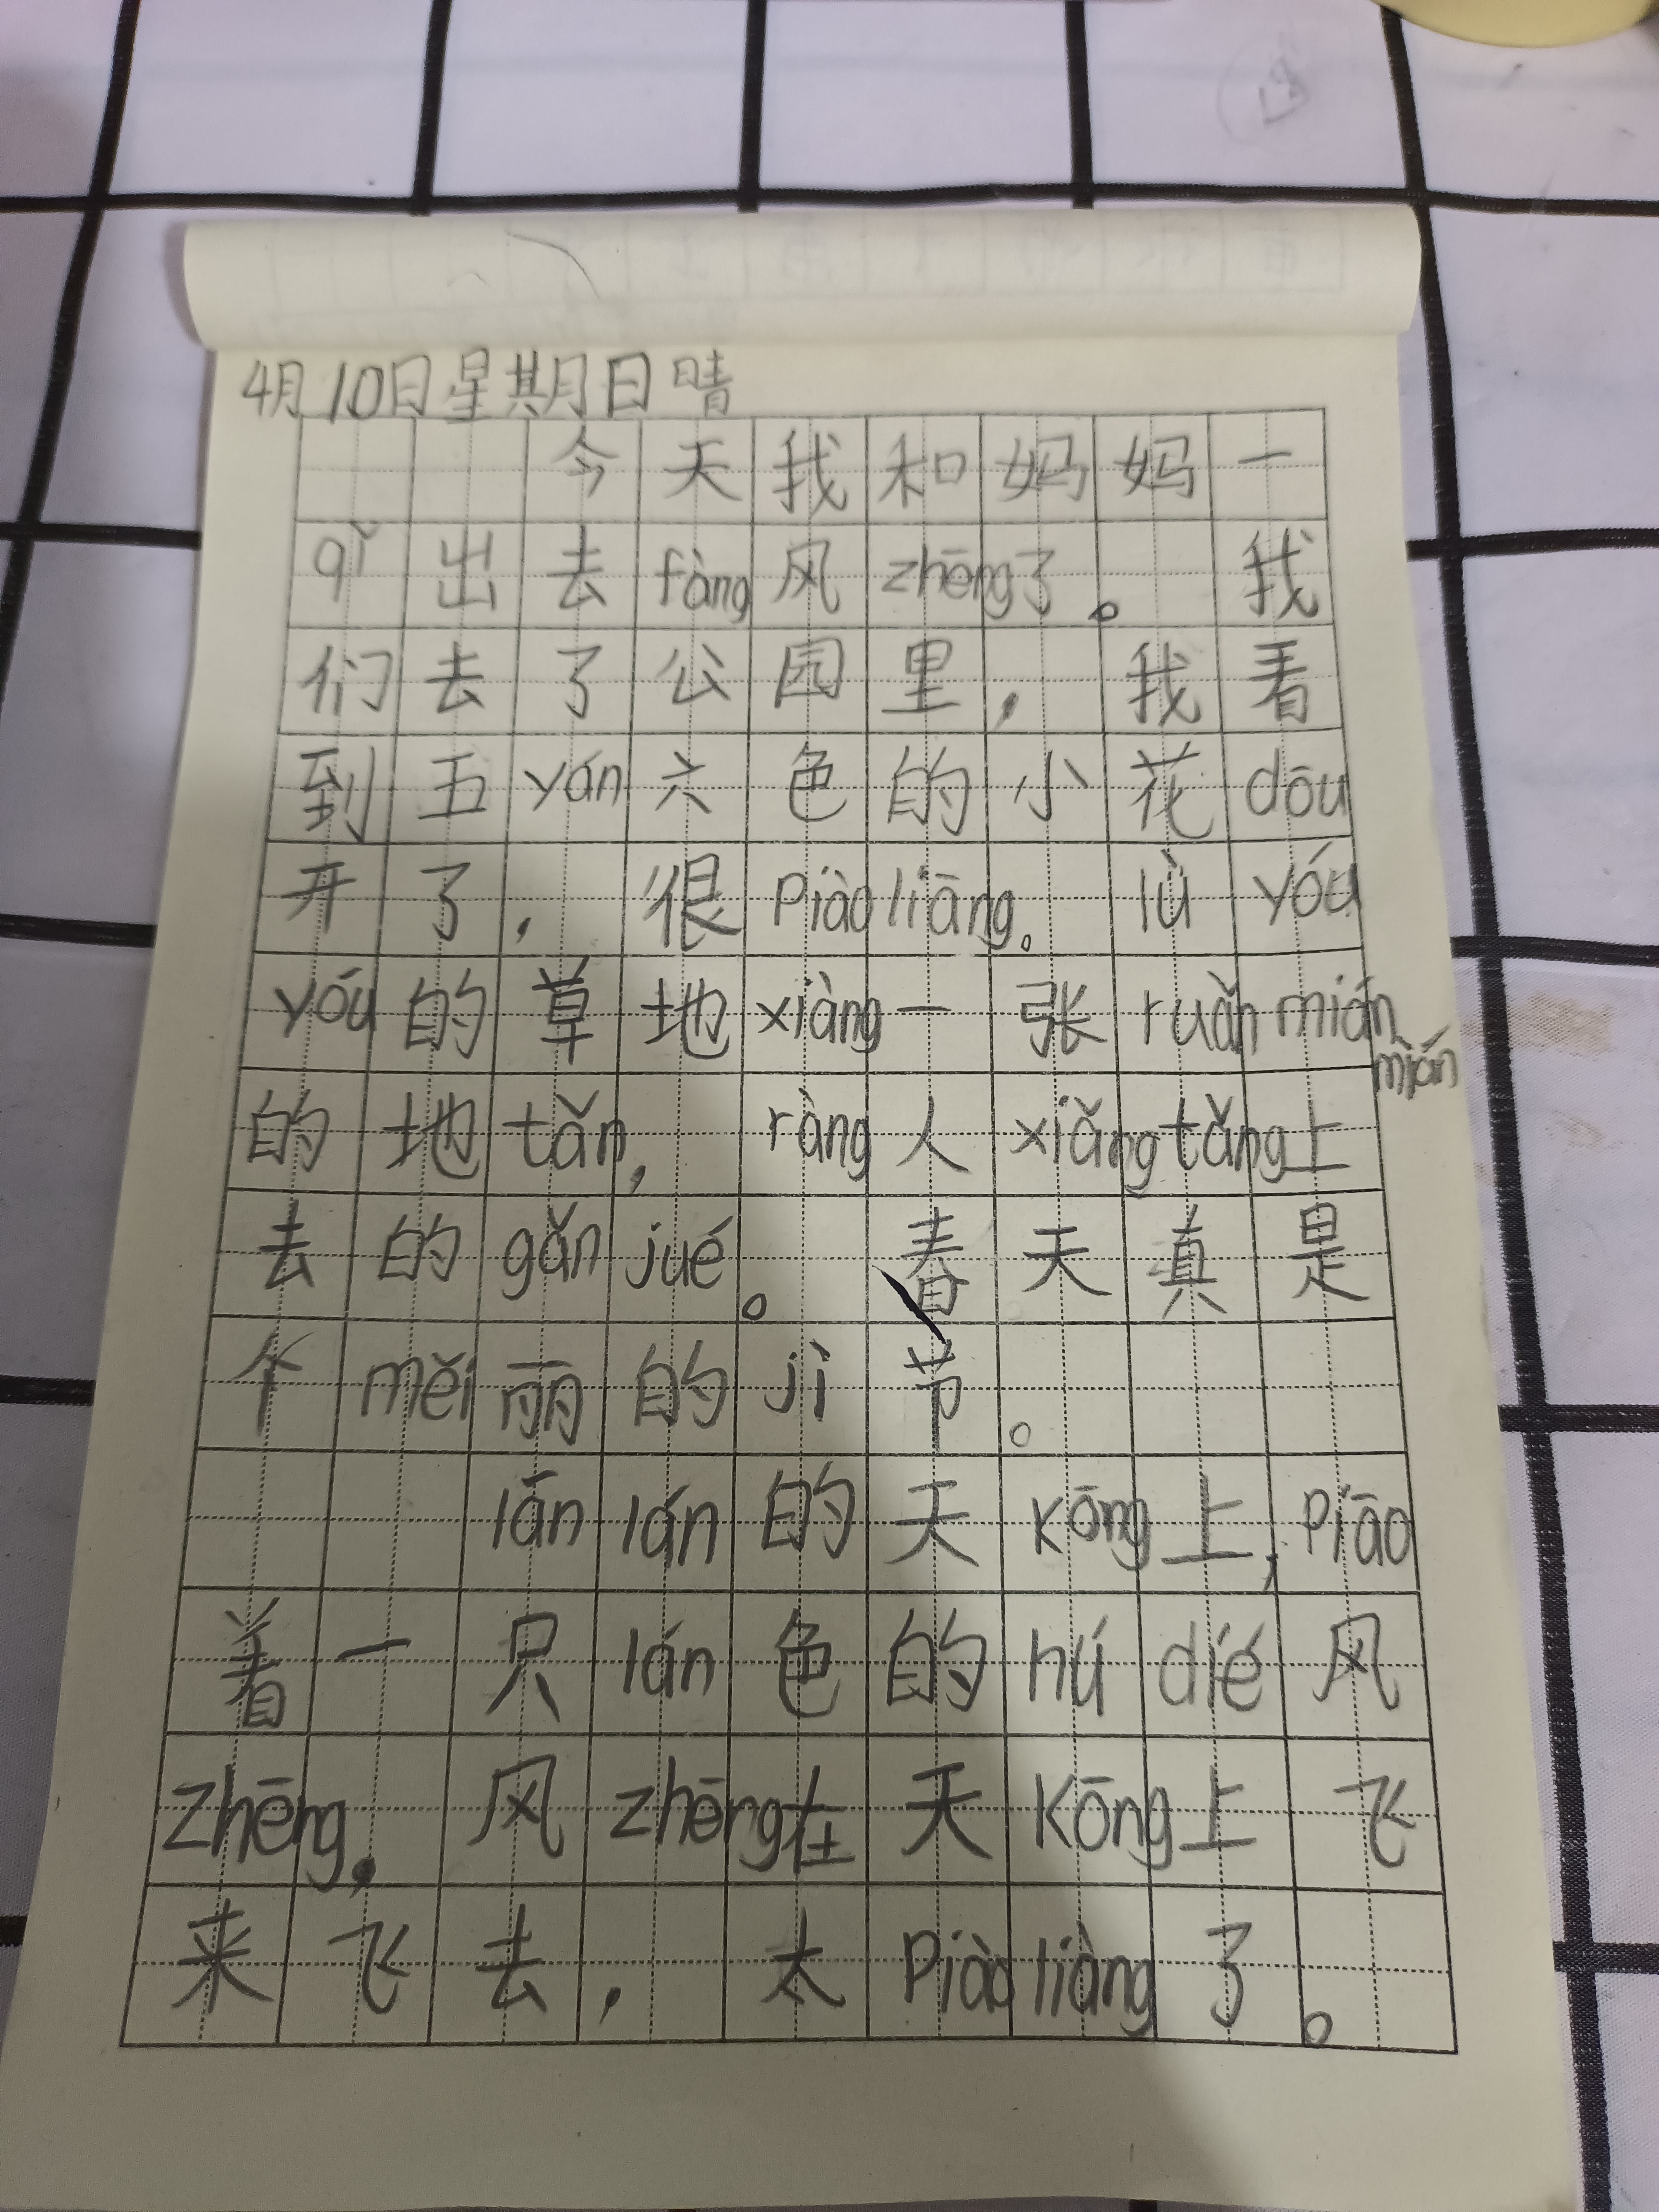 4月10日星期日晴
今天我和妈妈一
qǐ出去fàng风zhēng了。我
们去了公园里，我看
到五yán六色的小花dōu
开了，很piàoliāng。lǜ yóu
yóu的草地xiàng一张ruǎn mián
mián
的地tǎn，ràng人xiǎng tǎng上
去的gǎn jué。春天真是
个měi丽的jì节。
lán lán的天kōng上，piāo
着一只lán色的hú dié风
zhēng，风zhēng在天kōng上飞
来飞去，太piàoliàng了。